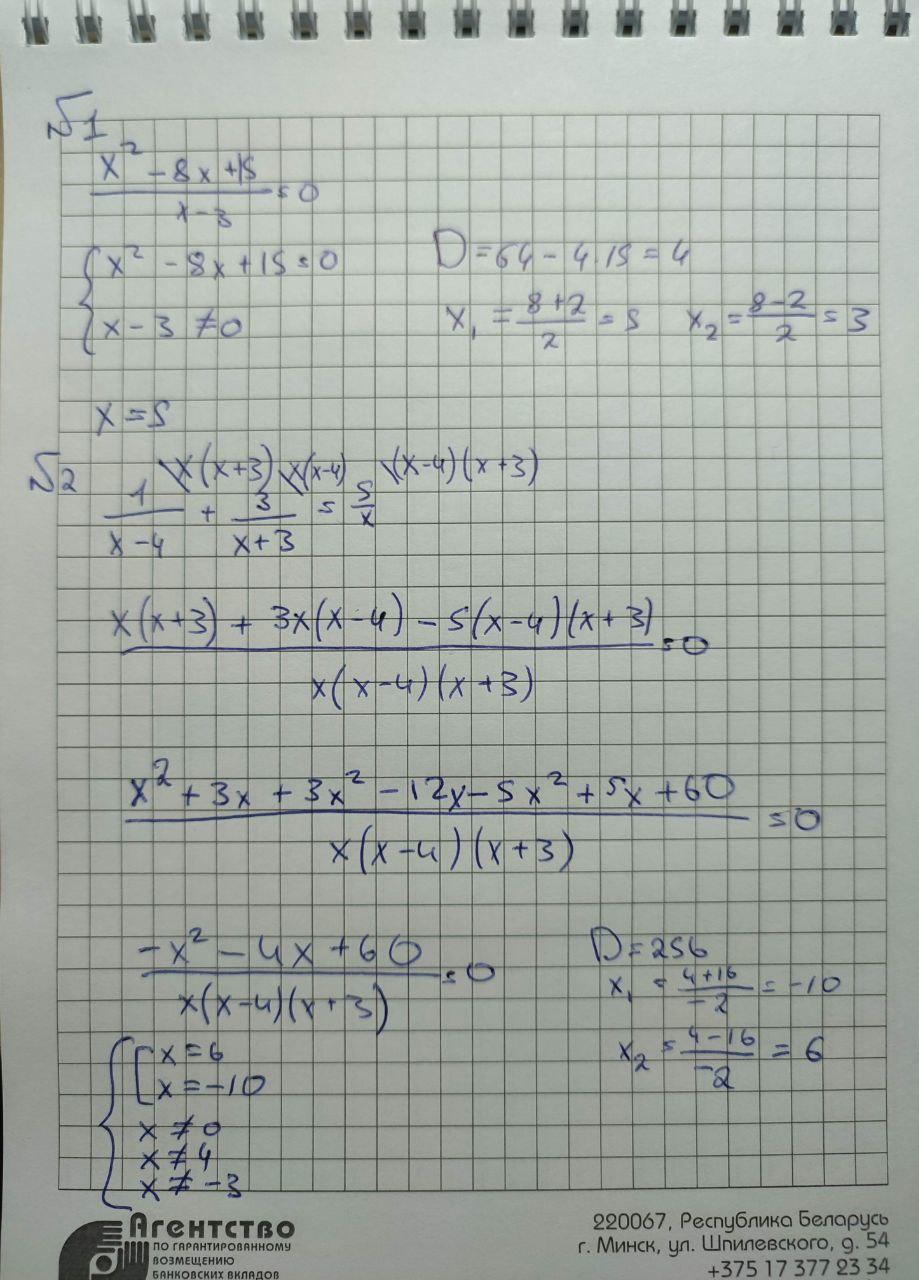 √1
x² - 8x + 15 / x - 3 = 0
{ x² - 8x + 15 = 0    D = 64 - 4·15 = 4
x - 3 ≠ 0    x₁ = (8+2)/2 = 5    x₂ = (8-2)/2 = 3
x = 5
√2    \x(x+3)    \x(x-4)    \(x-4)(x+3)
1/(x-4) + 3/(x+3) = 5/x
x(x+3) + 3x(x-4) - 5(x-4)(x+3) = 0
x(x-4)(x+3)
x² + 3x + 3x² - 12x - 5x² + 5x + 60 = 0
x(x-4)(x+3)
-x² - 4x + 60 = 0    D = 256
x(x-4)(x+3)    x₁ = (4+16)/-2 = -10
{ [ x = 6    x₂ = (4-16)/-2 = 6
x = -10
x ≠ 0
x ≠ 4
x ≠ -3
Агентство
ПО ГАРАНТИРОВАННОМУ
ВОЗМЕЩЕНИЮ
БАНКОВСКИХ ВКЛАДОВ
220067, Республика Беларусь
г. Минск, ул. Шпилевского, д. 54
+375 17 377 23 34